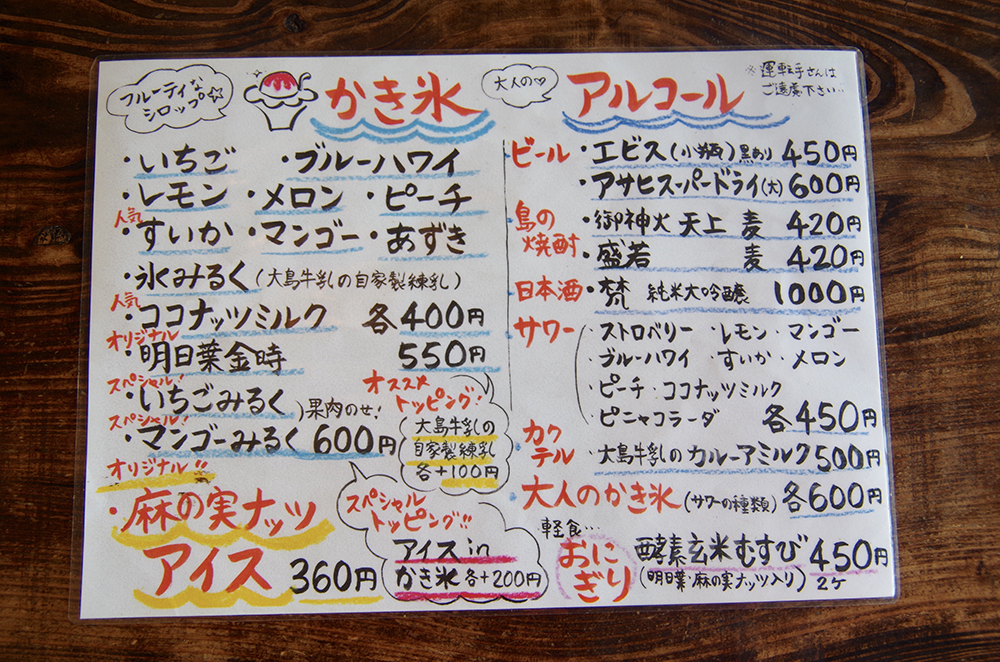 フルーティな
シロップ☆
かき氷
・いちご ・ブルーハワイ
・レモン ・メロン ・ピーチ
人気
・すいか ・マンゴー ・あずき
・氷みるく(大島牛乳の自家製練乳)
人気
・ココナッツミルク 各400円
オリジナル
・明日葉金時 550円
スペシャル!
・いちごみるく
スペシャル!
・マンゴーみるく
)果肉のせ!
600円
オススメ
トッピング!
大島牛乳の
自家製練乳
各+100円
オリジナル!!
・麻の実ナッツ
アイス 360円
スペシャル
トッピング!!
アイス in
かき氷 各+200円
大人の♡
アルコール
※運転手さんは
ご遠慮下さい…
ビール ・エビス(小瓶)黒あり 450円
・アサヒスーパードライ(大) 600円
島の
焼酎
・御神火 天上 麦 420円
・盛若 麦 420円
日本酒 ・梵 純米大吟醸 1000円
サワー
・ストロベリー ・レモン ・マンゴー
・ブルーハワイ ・すいか ・メロン
・ピーチ ・ココナッツミルク
・ピニャコラーダ 各450円
カク
テル
大島牛乳の カルーアミルク 500円
大人のかき氷(サワーの種類) 各600円
軽食…
おに
ぎり
酵素玄米むすび 450円
(明日葉・麻の実ナッツ入り) 2ケ